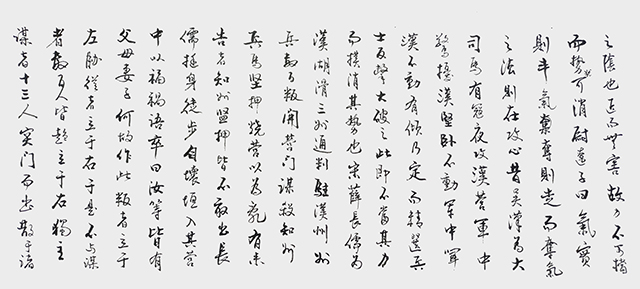 之陰也近而無害故力不可擋
而勢猶可消尉遼子曰氣實
則鬥氣奪則走而奪氣
之法則在攻心昔吴漢為大
司馬有寇夜攻漢營軍中
驚擾漢堅卧不動軍中聞
漢不動有傾乃定而精選兵
士反擊大破之此即不當其力
而撲消其勢也宋薛長儒為
漢湖滑三州通判駐漢州州
兵數百叛開營門謀殺知州
兵馬監押燒營以為亂有来
告者知州監押皆不敢出長
儒挺身徒步自壞垣入其營
中以福禍語卒曰汝等皆有
父母妻子何故作此叛者立于
左脇從者立于右于是不与謀
者數百人皆趨立于右獨主
謀者十三人突門而出散于諸